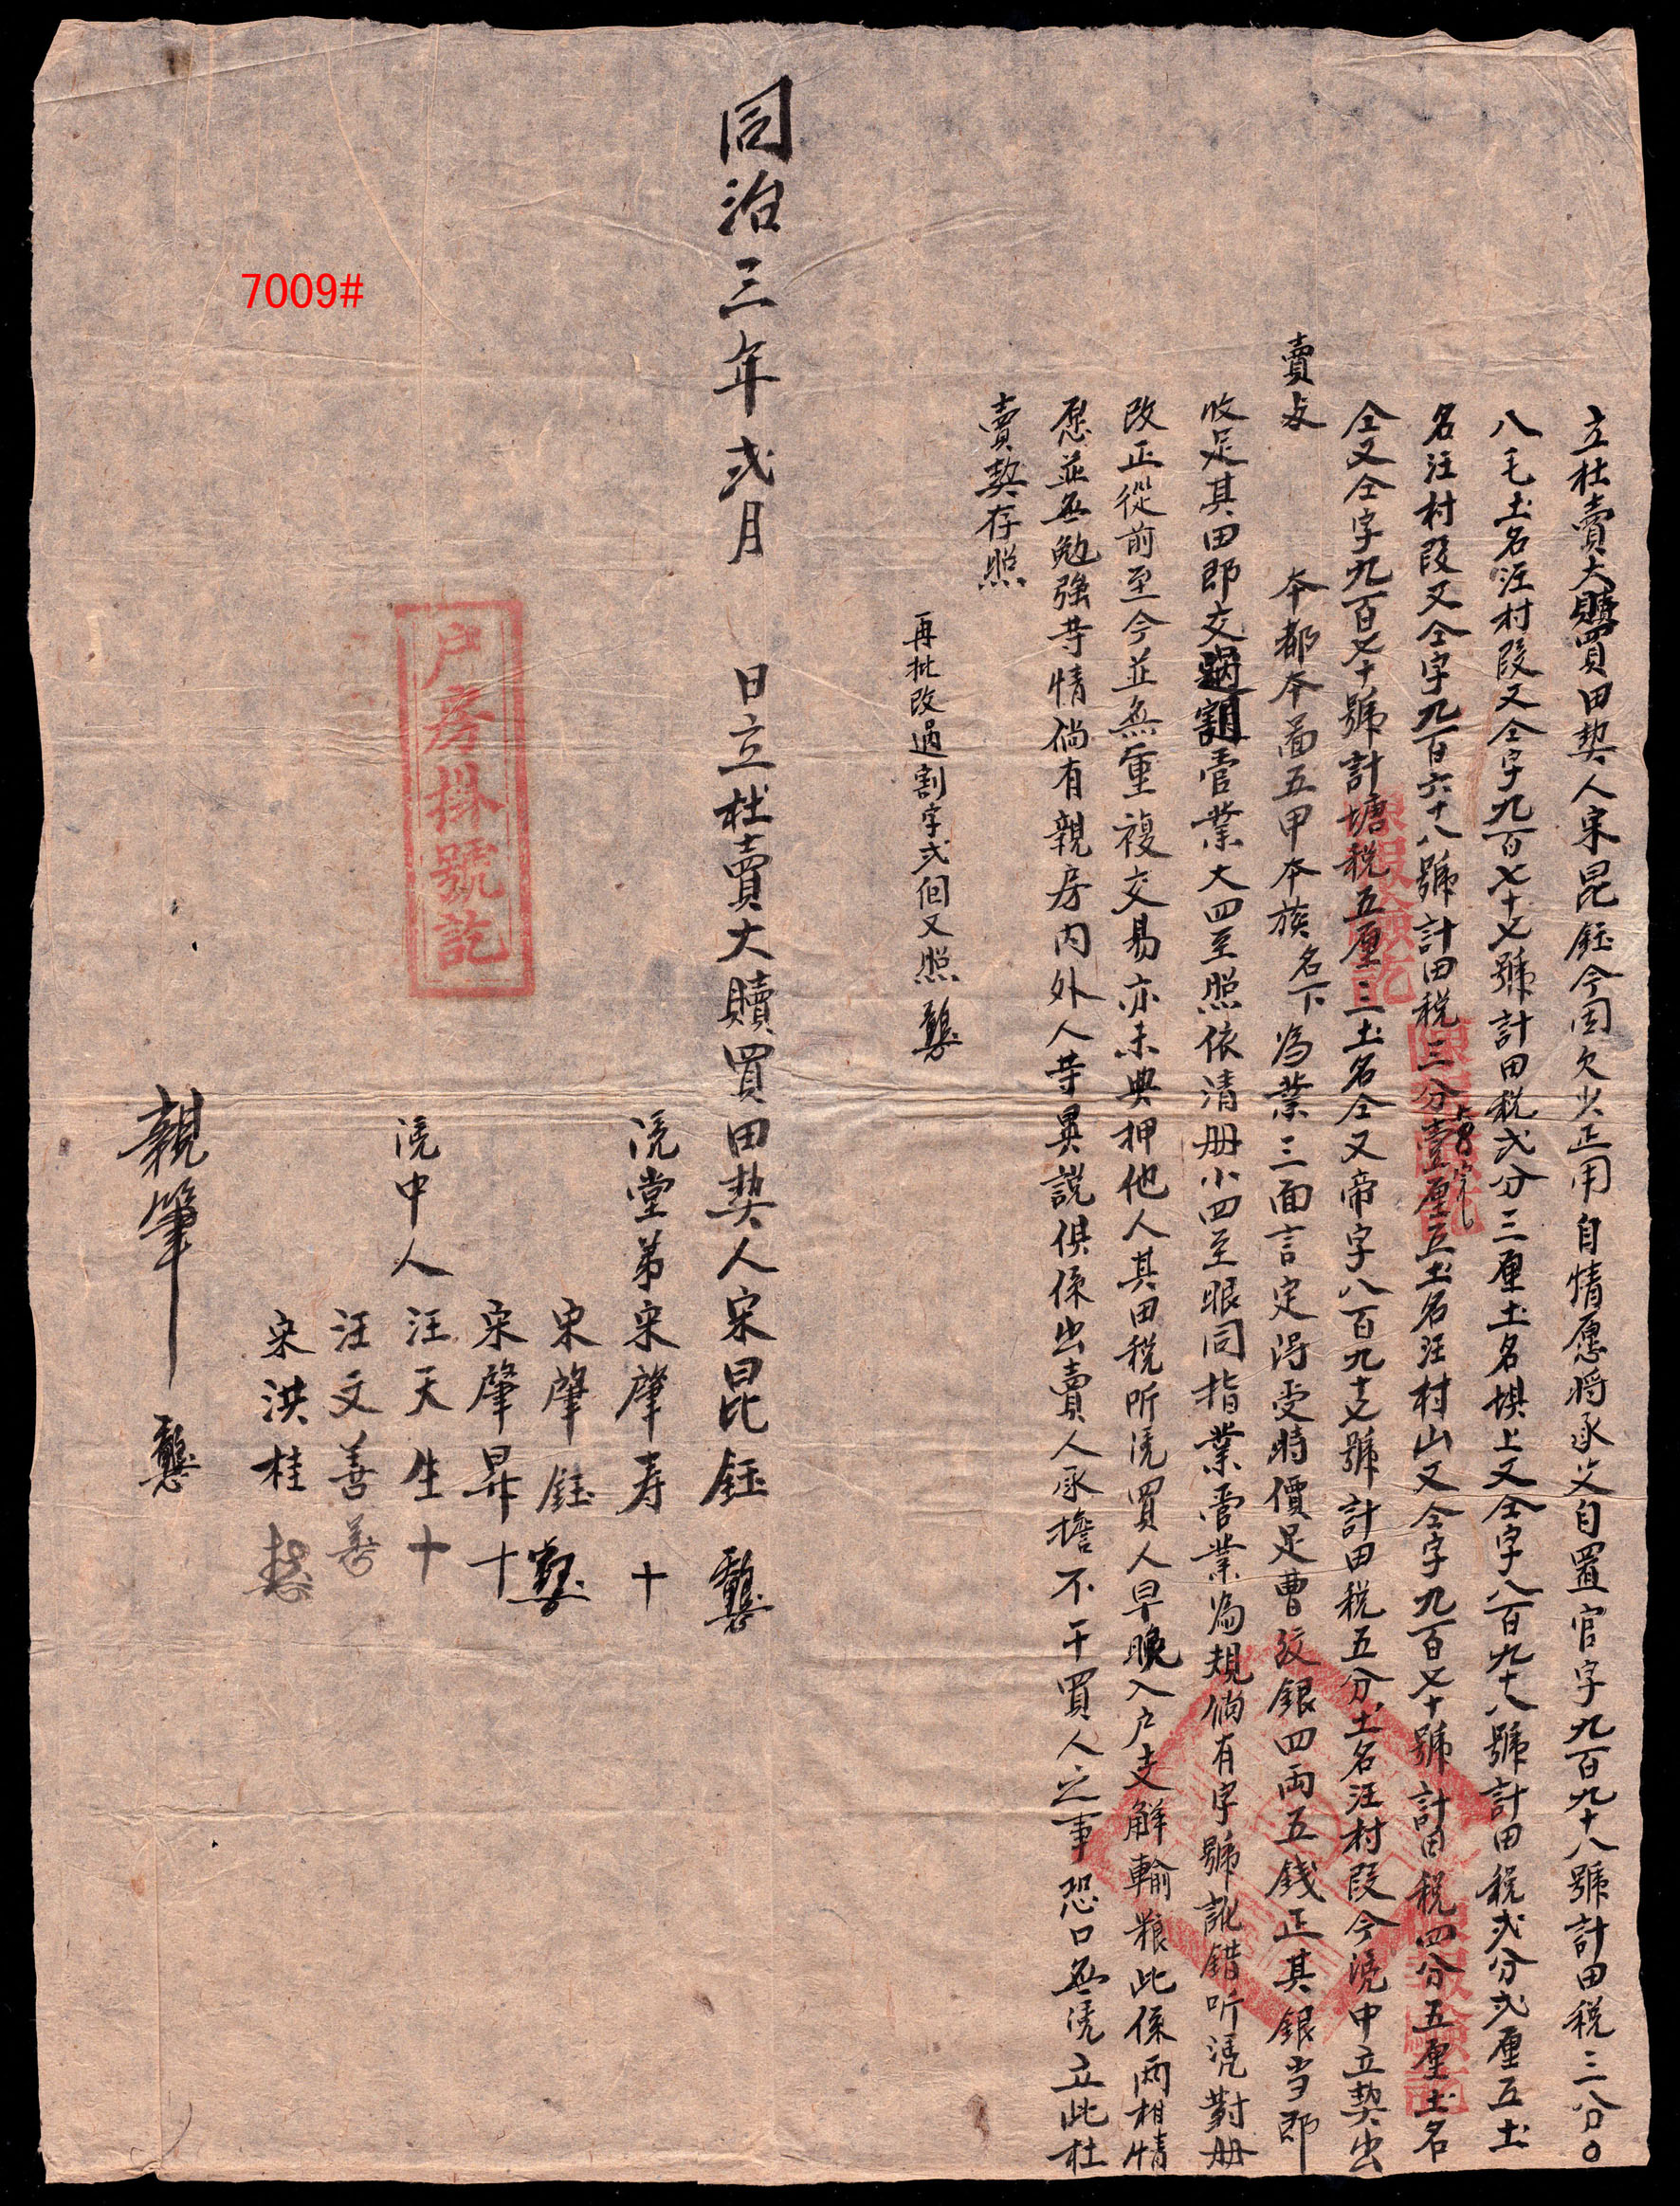 立杜賣大贖買田契人宋昆鈺今因欠少正用自情愿将承父自置官字九百九十八號計田税三分〇
八毛土名汪村段又仝字九百七十七號計田税弍分三厘土名塸上又仝字八百九十八號計田税弍分弍厘五土
名汪村段又仝字九百六十八號計田税三分壹厘五土名汪村山又仝字九百七十號計田税四分五厘土名
仝又仝字九百七十號計塘税五厘三土名仝又帝字八百九十七號計田税五分土名汪村段今凴中立契出
賣与 本都本啚五甲本族名下為業三面言定淂受時價足曹紋銀四両五錢正其銀当即
收足其田即交過割管業大四至照依清册小四至眼同指業管業為規倘有字號訛錯听凴對册
改正從前至今並無重複交易亦未典押他人其田税听凴買人早晚入户支解輸粮此係両相情
愿並無勉強等情倘有親房内外人等異説俱係出賣人承擔不干買人之事恐口無凴立此杜
賣契存照
再批改過割字弍個又照
同治三年弍月 日立杜賣大贖買田契人宋昆鈺
凴堂弟宋肇寿 十
宋肇鈺
宋肇昇 十
凴中人 汪天生 十
汪文善 善
宋洪桂
親筆
户房掛號訖
7009#